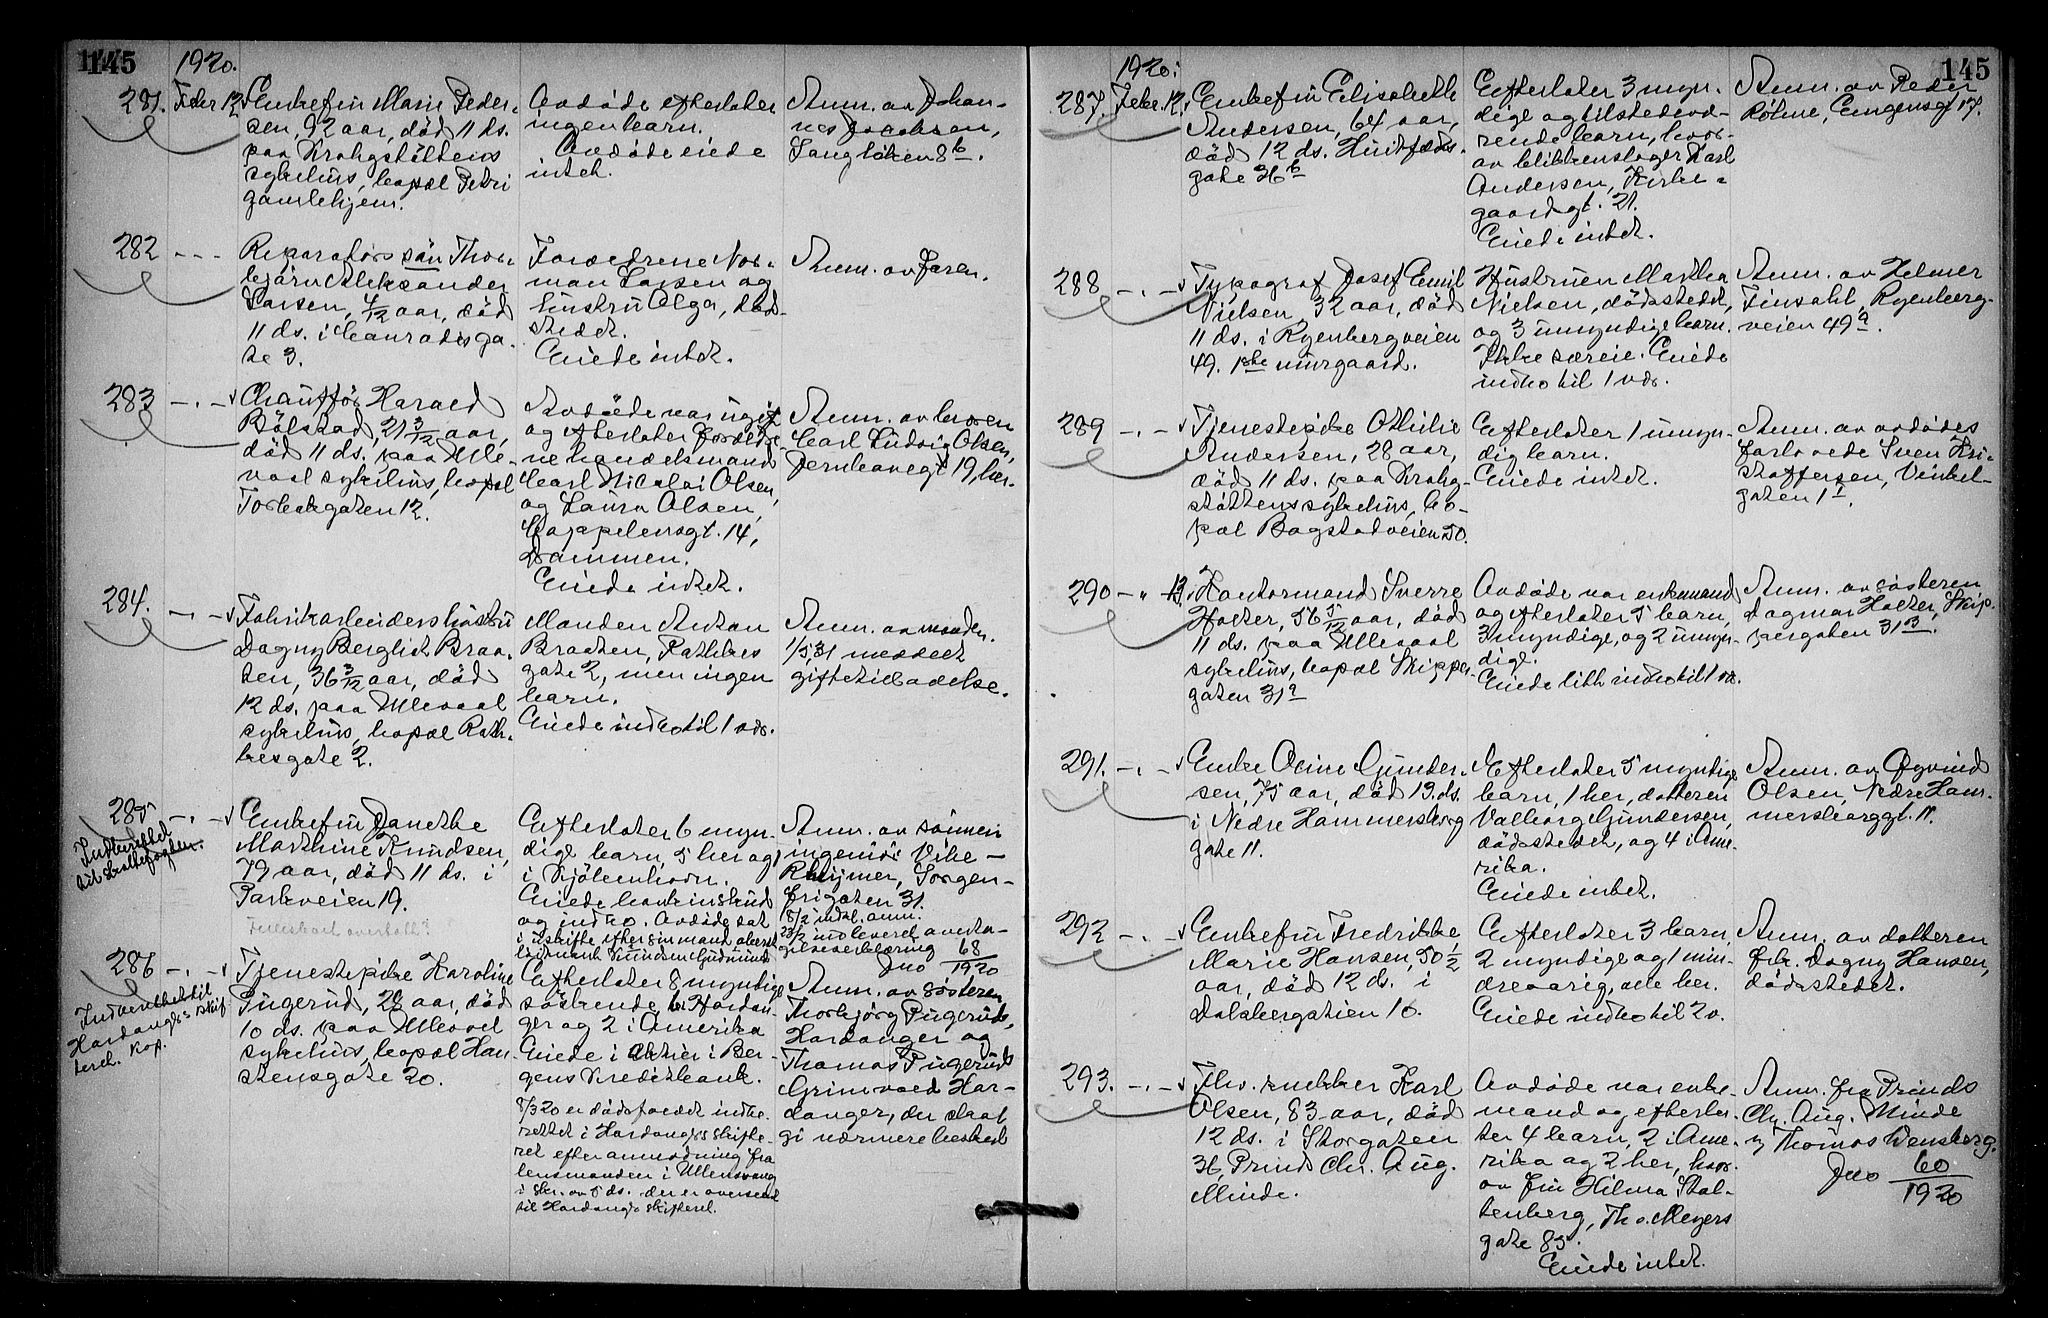 145
1920.
281. Febr 12. Enkefru Marie Peder-
sen, 92 aar, død 11 ds.
paa Krohgstøttens
sykehus, bopæl Petri
gamlehjem.
Avdøde efterlater
ingen barn.
Avdøde eiede
intet.
Anm. av Johan-
nes Jacobsen,
Langløkken 8b.
282 - - -
Reparatørs søn Thor-
bjørn Aleksander
Larsen, 4/12 aar, død
11 ds. i Conradis ga-
te 3.
Forældrene Nor-
man Larsen og
hustru Olga, død-
stedet.
Eiede intet.
Anm. av faren.
283 - . -
Chauffør Harald
Bølstad, 21 3/12 aar,
død 11 ds. paa Ulle-
vaal sykehus, bopæl
Torbakgaten 12.
Avdøde var ugift
og efterlater forældre-
ne handelsmand
Carl Nicolai Olsen,
og Laura Olsen,
Cappelensgt. 14,
Drammen.
Eiede intet.
Anm. av broren
Carl Ludvig Olsen,
Jernbanegt 19, her.
284. - . -
Fabrikarbeiders hustru
Dagny Berglist Braa-
ten, 36 3/12 aar, død
12 ds. paa Ullevaal
sykehus, bopæl Rath-
kesgate 2.
Manden Anton
Braaten, Rathkes
gate 2, men ingen
barn.
Eiede indbo til 1 vdr.
Anm. av manden.
1/5 31 meddelt
giftetilladelse.
285 - . -
Indberettet
til skattefogden.
Enkefru Janethe
Mathine Knudsen,
79 aar, død 11 ds. i
Parkveien 19.
Efterlater 6 myn-
dige barn, 5 her og 1
i Kjøbenhavn.
Eiede bankinskud
og indbo. Avdøde sat
i uskifte efter sin mand
Anm. av sønnen
ingeniør Vibe-
Sorgen-
frigaten 31.
8/2 indk. anm.
23/2 indleveret overta-
gelseserklæring 68
Jno 1920
286 - . -
Indberettet til
Hardangers skif-
teret. Kop.
Tjenestepike Karoline
Pugerud, 28 aar, død
10 ds. paa Ullevaal
sykehus, bopæl Han-
steensgate 20.
Efterlater 8 myndige
søskende, 6 i Hardan-
ger og 2 i Amerika
Eiede i aktier i Ber-
gens Kreditbank.
8/3 20 er dødsfaldet indbe-
rettet i Hardangers skifte-
ret efter anmodning fra
lensmanden i Ullensvang
i skr. av 5 ds. der er oversendt
til Hardangers skifteret.
Anm. av søsteren
Thorbjørg Pugerud,
Hardanger og
Thomas Pugerud
Grimvoed Har-
danger, der skal
gi nærmere beskeed
145
1920.
287. Febr. 12.
Enkefru Elisabeth
Andersen, 64 aar,
død 12 ds. Huitfelds-
gate 36b
Efterlater 3 myn-
dige og tilstedevæ-
rende barn, hvor-
av blikkenslager Karl
Andersen, Kirke-
gaardsgt. 21.
Eiede intet.
Anm. av Peder
Røhne, Eugensgt 17.
288 - . -
Typograf Josef Emil
Nielsen, 32 aar, død
11 ds. i Ryenbergveien
49. 1ste murgaard.
Hustruen Martha
Nielsen, dødsstedet,
og 3 umyndige barn.
Ikke særeie. Eiede
indbo til 1 vdr.
Anm. av Helmer
Finsahl, Ryenberg-
veien 49a.
289 - . -
Tjenestepike Othilie
Andersen, 28 aar,
død 11 ds. paa Krohg-
støttens sykehus, bo-
pæl Bogstadveien 50.
Efterlater 1 umyn-
dig barn.
Eiede intet.
Anm. av avdødes
forlovede Sven Kri-
stoffersen, Vinkel-
gaten 1 I.
290 - " - 12.
Kontormand Sverre
Holter, 56 5/12 aar, død
11 ds. paa Ullevaal
sykehus, bopæl Skipper-
gaten 31a
Avdøde var enkemand
og efterlater 5 barn,
3 myndige, og 2 umyn-
dige.
Eiede litt indbo til 1 vdr.
Anm. av søsteren
Dagmar Holter, Skip-
pergaten 31 3.
291. - . -
Enke Oline Gunder-
sen, 75 aar, død 13. ds.
i Nedre Hammersborg
gate 11.
Efterlater 5 myndige
barn, 1 her, datteren
Valborg Gundersen,
dødsstedet, og 4 i Ame-
rika.
Eiede intet.
Anm. av Øyvind
Olsen, Nedre Ham-
mersborggt. 11.
292 - . -
Enkefru Fredrikke
Marie Hansen, 50 1/2
aar, død 12 ds. i
Dalsbergstien 10.
Efterlater 3 barn,
2 myndige og 1 min-
dreaarig, alle her.
Eiede indbo til 20.
Anm. av datteren
frk. Dagny Hansen,
dødsstedet.
293. - . -
Fhv. snekker Karl
Olsen, 83 aar, død
12 ds. i Storgaten
36, Prinds Chr. Aug.
Minde.
Avdøde var enke-
mand og efterla-
ter 4 barn, 2 i Ame-
rika og 2 her, hvor-
av fru Hilma Stol-
tenberg, Th. Meyers
gate 85.
Eiede intet.
Anm. fra Prinds
Chr. Aug. Minde
v/ Thomas Wensberg.
Jno 60
1920